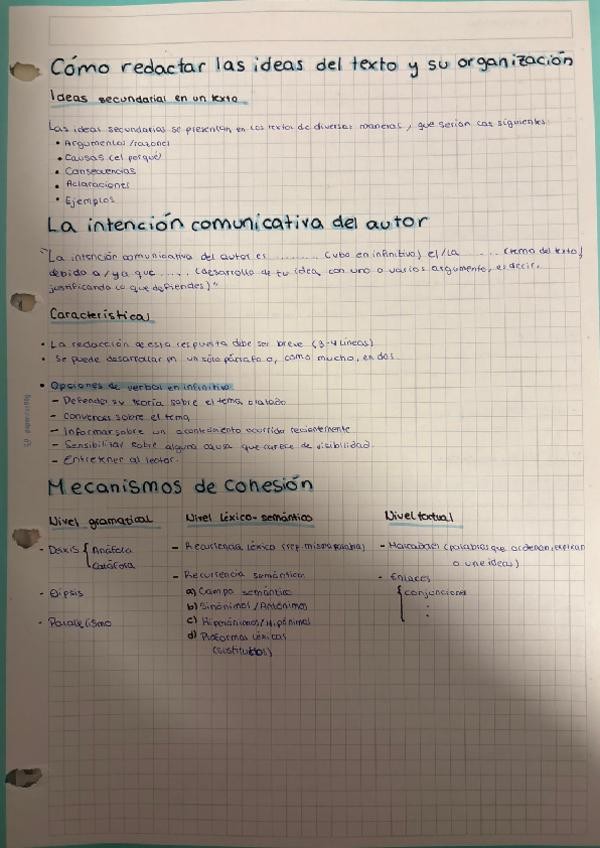 Cómo redactar las ideas del texto y su organización
Ideas secundarias en un texto
Las ideas secundarias se presentan en los textos de diversas maneras, que serían las siguientes:
• Argumentos/razones
• Causas (el porqué)
• Consecuencias
• Aclaraciones
• Ejemplos
La intención comunicativa del autor
"La intención comunicativa del autor es ......... (vbo en infinitivo) el/la ...... (tema del texto)
debido a/ya que ..... (desarrollo de tu idea, con uno o varios argumento, es decir,
justificando lo que defiendes)"
Características
• La redacción de esta respuesta debe ser breve (3-4 líneas)
• Se puede desarrollar en un sólo párrafo o, como mucho, en dos
• Opciones de verbos en infinitivo
- Defender su teoría sobre el tema tratado
- Convencer sobre el tema
- Informar sobre un acontecimiento ocurrido recientemente
- Sensibilizar sobre alguna causa que carece de visibilidad.
- Entretener al lector.
Mecanismos de cohesión
Nivel gramatical
- Deixis { Anáfora
Catáfora
- Elipsis
- Paralelismo
Nivel léxico-semántico
- Recurrencia léxica (rep. misma palabra)
- Recurrencia semántica
a) Campo semántico
b) Sinónimos/Antónimos
c) Hiperónimos/Hipónimos
d) Proformas léxicas
(sustitutos)
Nivel textual
- Marcadores (palabras que ordenan, explican
o une ideas)
- Enlaces
{ conjunciones
: